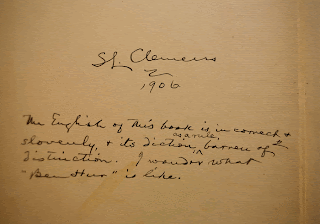 SL. Clemens
1906
The English of this book is incorrect &
slovenly, & its diction, as a rule, barren of
distinction. I wonder what
"Ben Hur" is like.